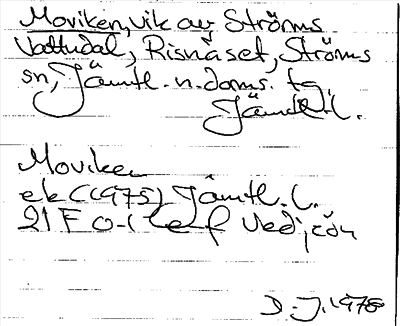 Moviken, vik av Ströms
Vattudal, Risnäset, Ströms
sn, Jämtl. n. doms. tg,
Jämtl. l.
Moviken
ek (1975) Jämtl. l.
21 F 0-1 e-f
D. J. 1978